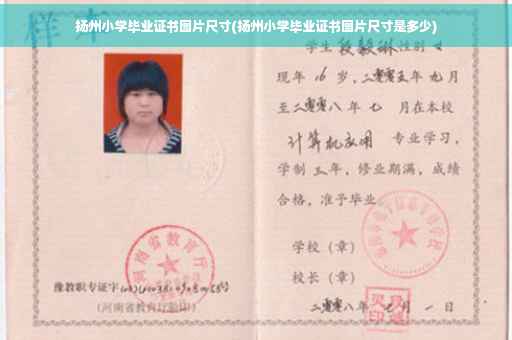 扬州小学毕业证书图片尺寸(扬州小学毕业证书图片尺寸是多少)
样本
学生段毅琳性别女
现年16岁，二零零五年九月
至二零零八年七月在本校
计算机应用 专业学习，
学制三年，修业期满，成绩
合格，准予毕业
学校（章）
校长（章）
二零零八年七月一日
河南省教育厅
豫教职专证字
（河南省教育厅验印）